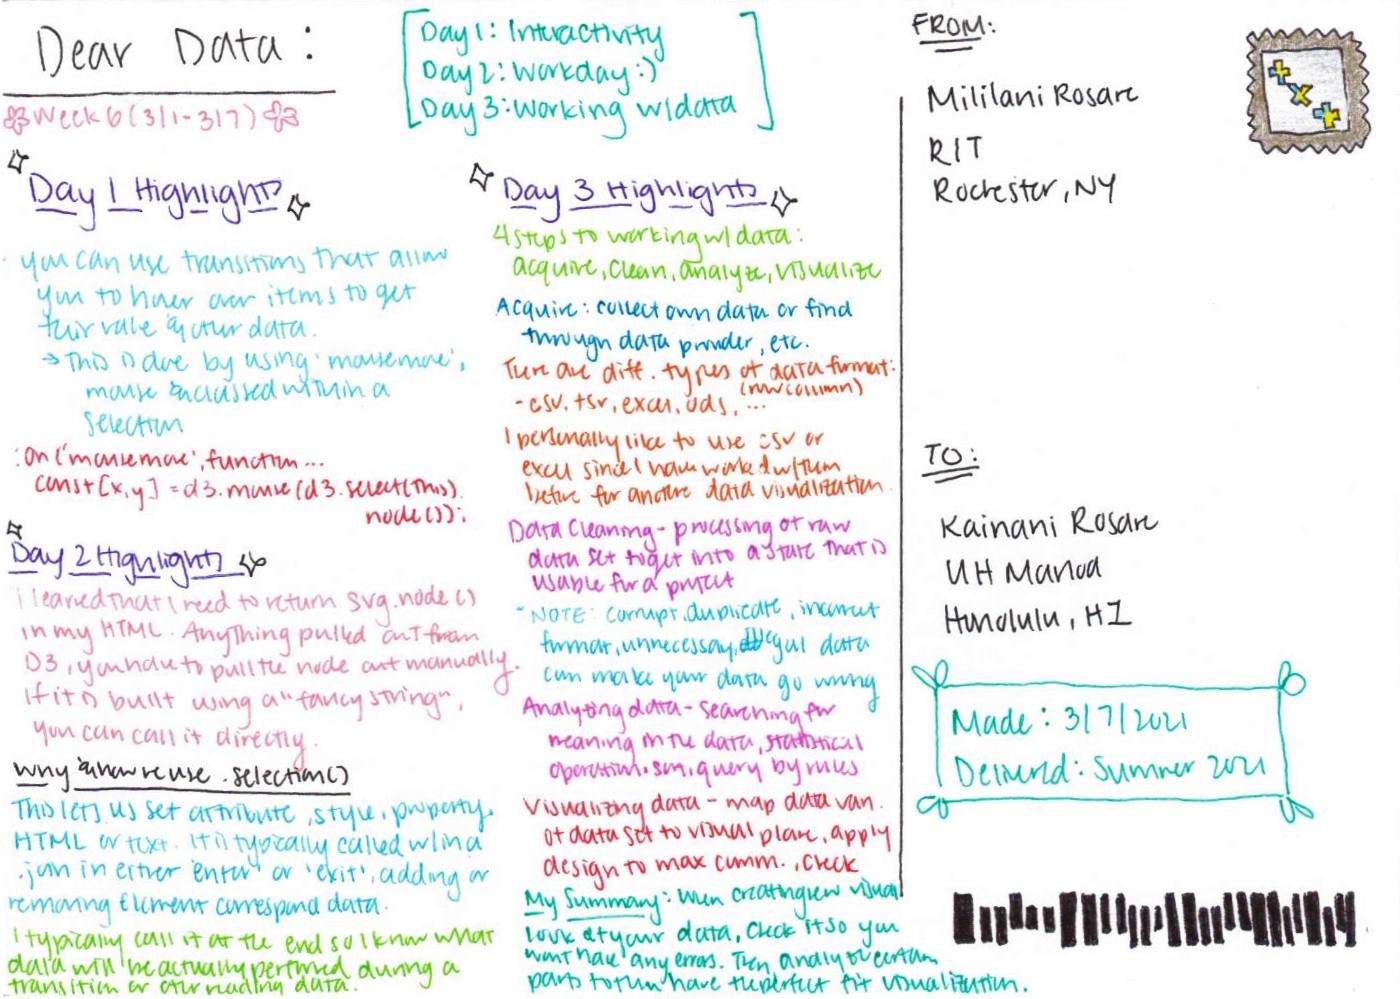 Dear Data:
Week 6 (3/1-3/7)
Day 1: Interactivity
Day 2: Workday :)
Day 3: Working w/data
Day 1 Highlights
· you can use transitions that allow
you to hover over items to get
their value & other data.
→ This is done by using 'mousemove',
mouse enclosed within a
selection
.on('mousemove', function...
const [x,y] = d3.mouse(d3.select(this).
node());
Day 2 Highlights
I learned that I need to return svg.node()
in my HTML. Anything pulled out from
D3, you have to pull the node out manually.
If it is built using a "fancy string",
you can call it directly.
Why & how we use .selection()
This lets us set attribute, style, property,
HTML or text. It is typically called w/in a
.join in either 'enter' or 'exit', adding or
removing element correspond data.
I typically call it at the end so I know what
data will be actually performed during a
transition or other reading data.
Day 3 Highlights
4 steps to working w/ data:
acquire, clean, analyze, visualize
Acquire: collect own data or find
through data provider, etc.
There are diff. types of data format:
(row column)
- csv, tsv, excel, ods, ...
I personally like to use csv or
excel since I have worked w/ them
before for another data visualization.
Data Cleaning - processing of raw
data set to get into a state that is
usable for a project
*NOTE: corrupt, duplicate, incorrect
format, unnecessary, illegal data
can make your data go wrong
Analyzing data - searching for
meaning in the data, statistical
operation, sum, query by rules
Visualizing data - map data van.
of data set to visual plane, apply
design to max comm., check
My Summary: When creating new visual
look at your data, check it so you
wont have any errors. Then analyze certain
parts to then have the perfect fit visualization.
FROM:
Mililani Rosare
RIT
Rochester, NY
TO:
Kainani Rosare
UH Manoa
Honolulu, HI
Made: 3/7/2021
Delivered: Summer 2021